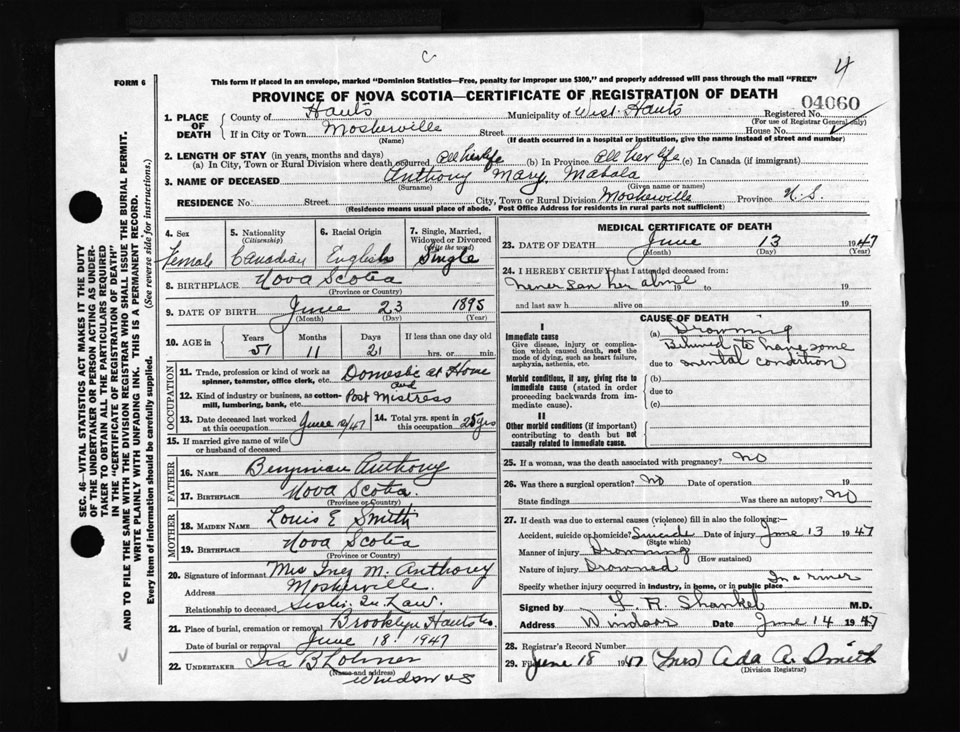 C
4
FORM 6
This form if placed in an envelope, marked "Dominion Statistics—Free, penalty for improper use $300," and properly addressed will pass through the mail "FREE"
PROVINCE OF NOVA SCOTIA—CERTIFICATE OF REGISTRATION OF DEATH
04060
1. PLACE OF DEATH
County of Hants Municipality of West Hants Registered No.
(For use of Registrar General only)
If in City or Town Mosherville Street House No.
(Name) (If death occurred in a hospital or institution, give the name instead of street and number)
2. LENGTH OF STAY (in years, months and days)
(a) In City, Town or Rural Division where death occurred All her life (b) In Province All her life (c) In Canada (if immigrant)
3. NAME OF DECEASED Anthony Mary Mabala
(Surname) (Given name or names)
RESIDENCE No. Street City, Town or Rural Division Mosherville Province N.S.
(Residence means usual place of abode. Post Office Address for residents in rural parts not sufficient)
SEC. 46—VITAL STATISTICS ACT MAKES IT THE DUTY
OF THE UNDERTAKER OR PERSON ACTING AS UNDER-
TAKER TO OBTAIN ALL THE PARTICULARS REQUIRED
IN THE "CERTIFICATE OF REGISTRATION OF DEATH"
AND TO FILE THE SAME WITH THE DIVISION REGISTRAR WHO SHALL ISSUE THE BURIAL PERMIT.
WRITE PLAINLY WITH UNFADING INK. THIS IS A PERMANENT RECORD.
Every item of information should be carefully supplied. (See reverse side for instructions.)
4. Sex
Female
5. Nationality
(Citizenship)
Canadian
6. Racial Origin
English
7. Single, Married,
Widowed or Divorced
(Write the word)
Single
8. BIRTHPLACE Nova Scotia
(Province or Country)
9. DATE OF BIRTH June 23 1895
(Month) (Day) (Year)
10. AGE in Years Months Days If less than one day old
51 11 21 hrs. or min.
OCCUPATION
11. Trade, profession or kind of work as
spinner, teamster, office clerk, etc. Domestic at Home
and
12. Kind of industry or business, as cotton-
mill, lumbering, bank, etc. Post Mistress
13. Date deceased last worked
at this occupation June 12/47
14. Total yrs. spent in
this occupation 25 yrs
15. If married give name of wife
or husband of deceased
FATHER
16. NAME Benjman Anthony
17. BIRTHPLACE Nova Scotia.
(Province or Country)
MOTHER
18. MAIDEN NAME Louis E Smith
19. BIRTHPLACE Nova Scotia
(Province or Country)
20. Signature of informant Mrs Inez M. Anthony
Address Mosherville
Relationship to deceased Sister In Law.
21. Place of burial, cremation or removal Brooklyn Hants Co.
Date of burial or removal June 18. 1947
22. UNDERTAKER Ira B
(Name and address)
Windsor NS
MEDICAL CERTIFICATE OF DEATH
23. DATE OF DEATH June 13 1947
(Month) (Day) (Year)
24. I HEREBY CERTIFY that I attended deceased from:
never saw her alive 19 to 19
and last saw h alive on 19
CAUSE OF DEATH
I
Immediate cause
Give disease, injury or complica-
tion which caused death, not the
mode of dying, such as heart failure,
asphyxia, asthenia, etc.
(a) Drowning
Believed to have some
due to mental condition
Morbid conditions, if any, giving rise to
immediate cause (stated in order
proceeding backwards from im-
mediate cause).
(b)
due to
(c)
II
Other morbid conditions (if important)
contributing to death but not
causally related to immediate cause.
25. If a woman, was the death associated with pregnancy? No
26. Was there a surgical operation? No Date of operation 19
State findings Was there an autopsy? No
27. If death was due to external causes (violence) fill in also the following:—
Accident, suicide or homicide? Suicide Date of injury June 13 1947
(State which)
Manner of injury Drowning
(How sustained)
Nature of injury Drowned
In a river
Specify whether injury occurred in industry, in home, or in public place
Signed by L. R. Shankel M.D.
Address Windsor Date June 14 1947
28. Registrar's Record Number
29. Filed June 18 1947 (Mrs) Ada A. Smith
(Division Registrar)